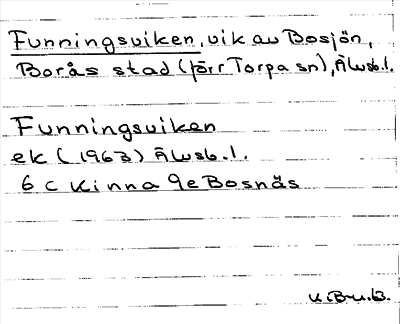 Funningsviken, vik av Bosjön,
Borås stad (förr Torpa sn), Älvsb. l.
Funningsviken
ek (1963) Älvsb. l.
6 c Kinna 9e Bosnäs